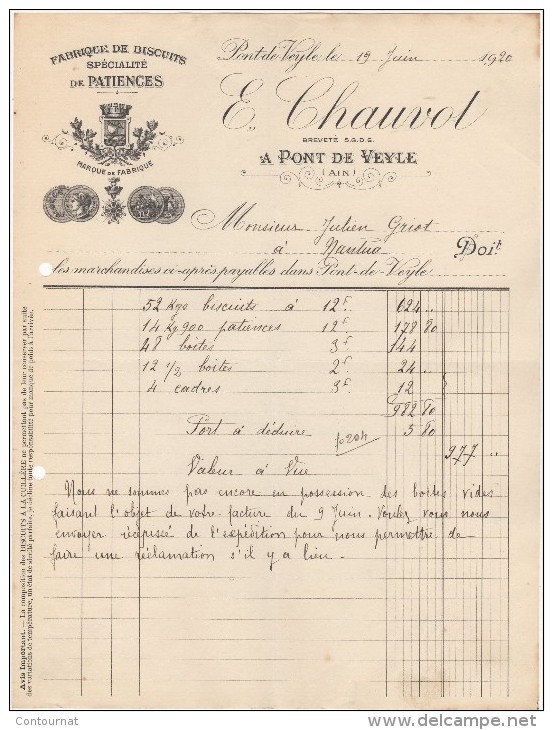 FABRIQUE DE BISCUITS
SPÉCIALITÉ
DE PATIENCES
MARQUE DE FABRIQUE
Pont de Veyle le 19 Juin 1920
E. Chauvot
BREVETÉ S.G.D.G.
A PONT DE VEYLE
(AIN)
Monsieur Julien Griot
à Nantua Doit
les marchandises ci-après payables dans Pont-de-Veyle
52 Kgs biscuits à 12f 624 ..
14 Kg 900 patiences 12f 178 80
48 boites 3f 144
12 1/2 boites 2f 24 ..
4 cadres 3f 12
982 80
Port à déduire 5 80
977 ..
Valeur à Vue
Nous ne sommes pas encore en possession des boites vides
faisant l'objet de votre facture du 9 Juin. Voulez vous nous
envoyer récépissé de l'expédition pour nous permettre de
faire une réclamation s'il y a lieu.
Avis Important. — La composition des BISCUITS A LA CUILLÈRE ne permettant pas de leur conserver par suite
des variations de température, un état de siccité parfaite, je décline toute responsabilité pour manque de poids à l'arrivée.
Contournat
delcampe.net